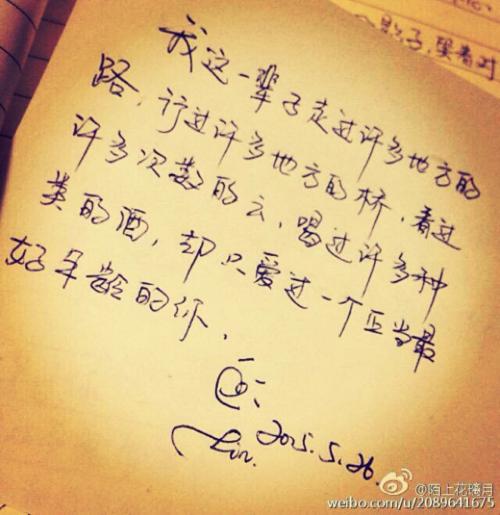 我这一辈子走过许多地方的
路，行过许多地方的桥，看过
许多次数的云，喝过许多种
类的酒，却只爱过一个正当最
好年龄的你，
2015.5.26.
影子，坐着对
@陌上花晻月
weibo.com/u/2089641675